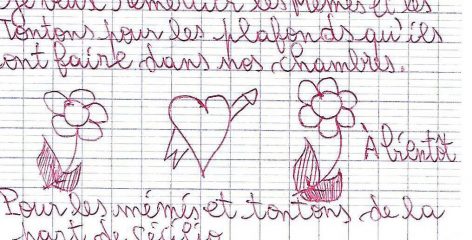 Je veux remercier les mémés et les
Tontons pour les plafonds qu'ils
ont faire dans nos chambres.
À bientôt
Pour les mémés et tontons de la
part de Cécilia